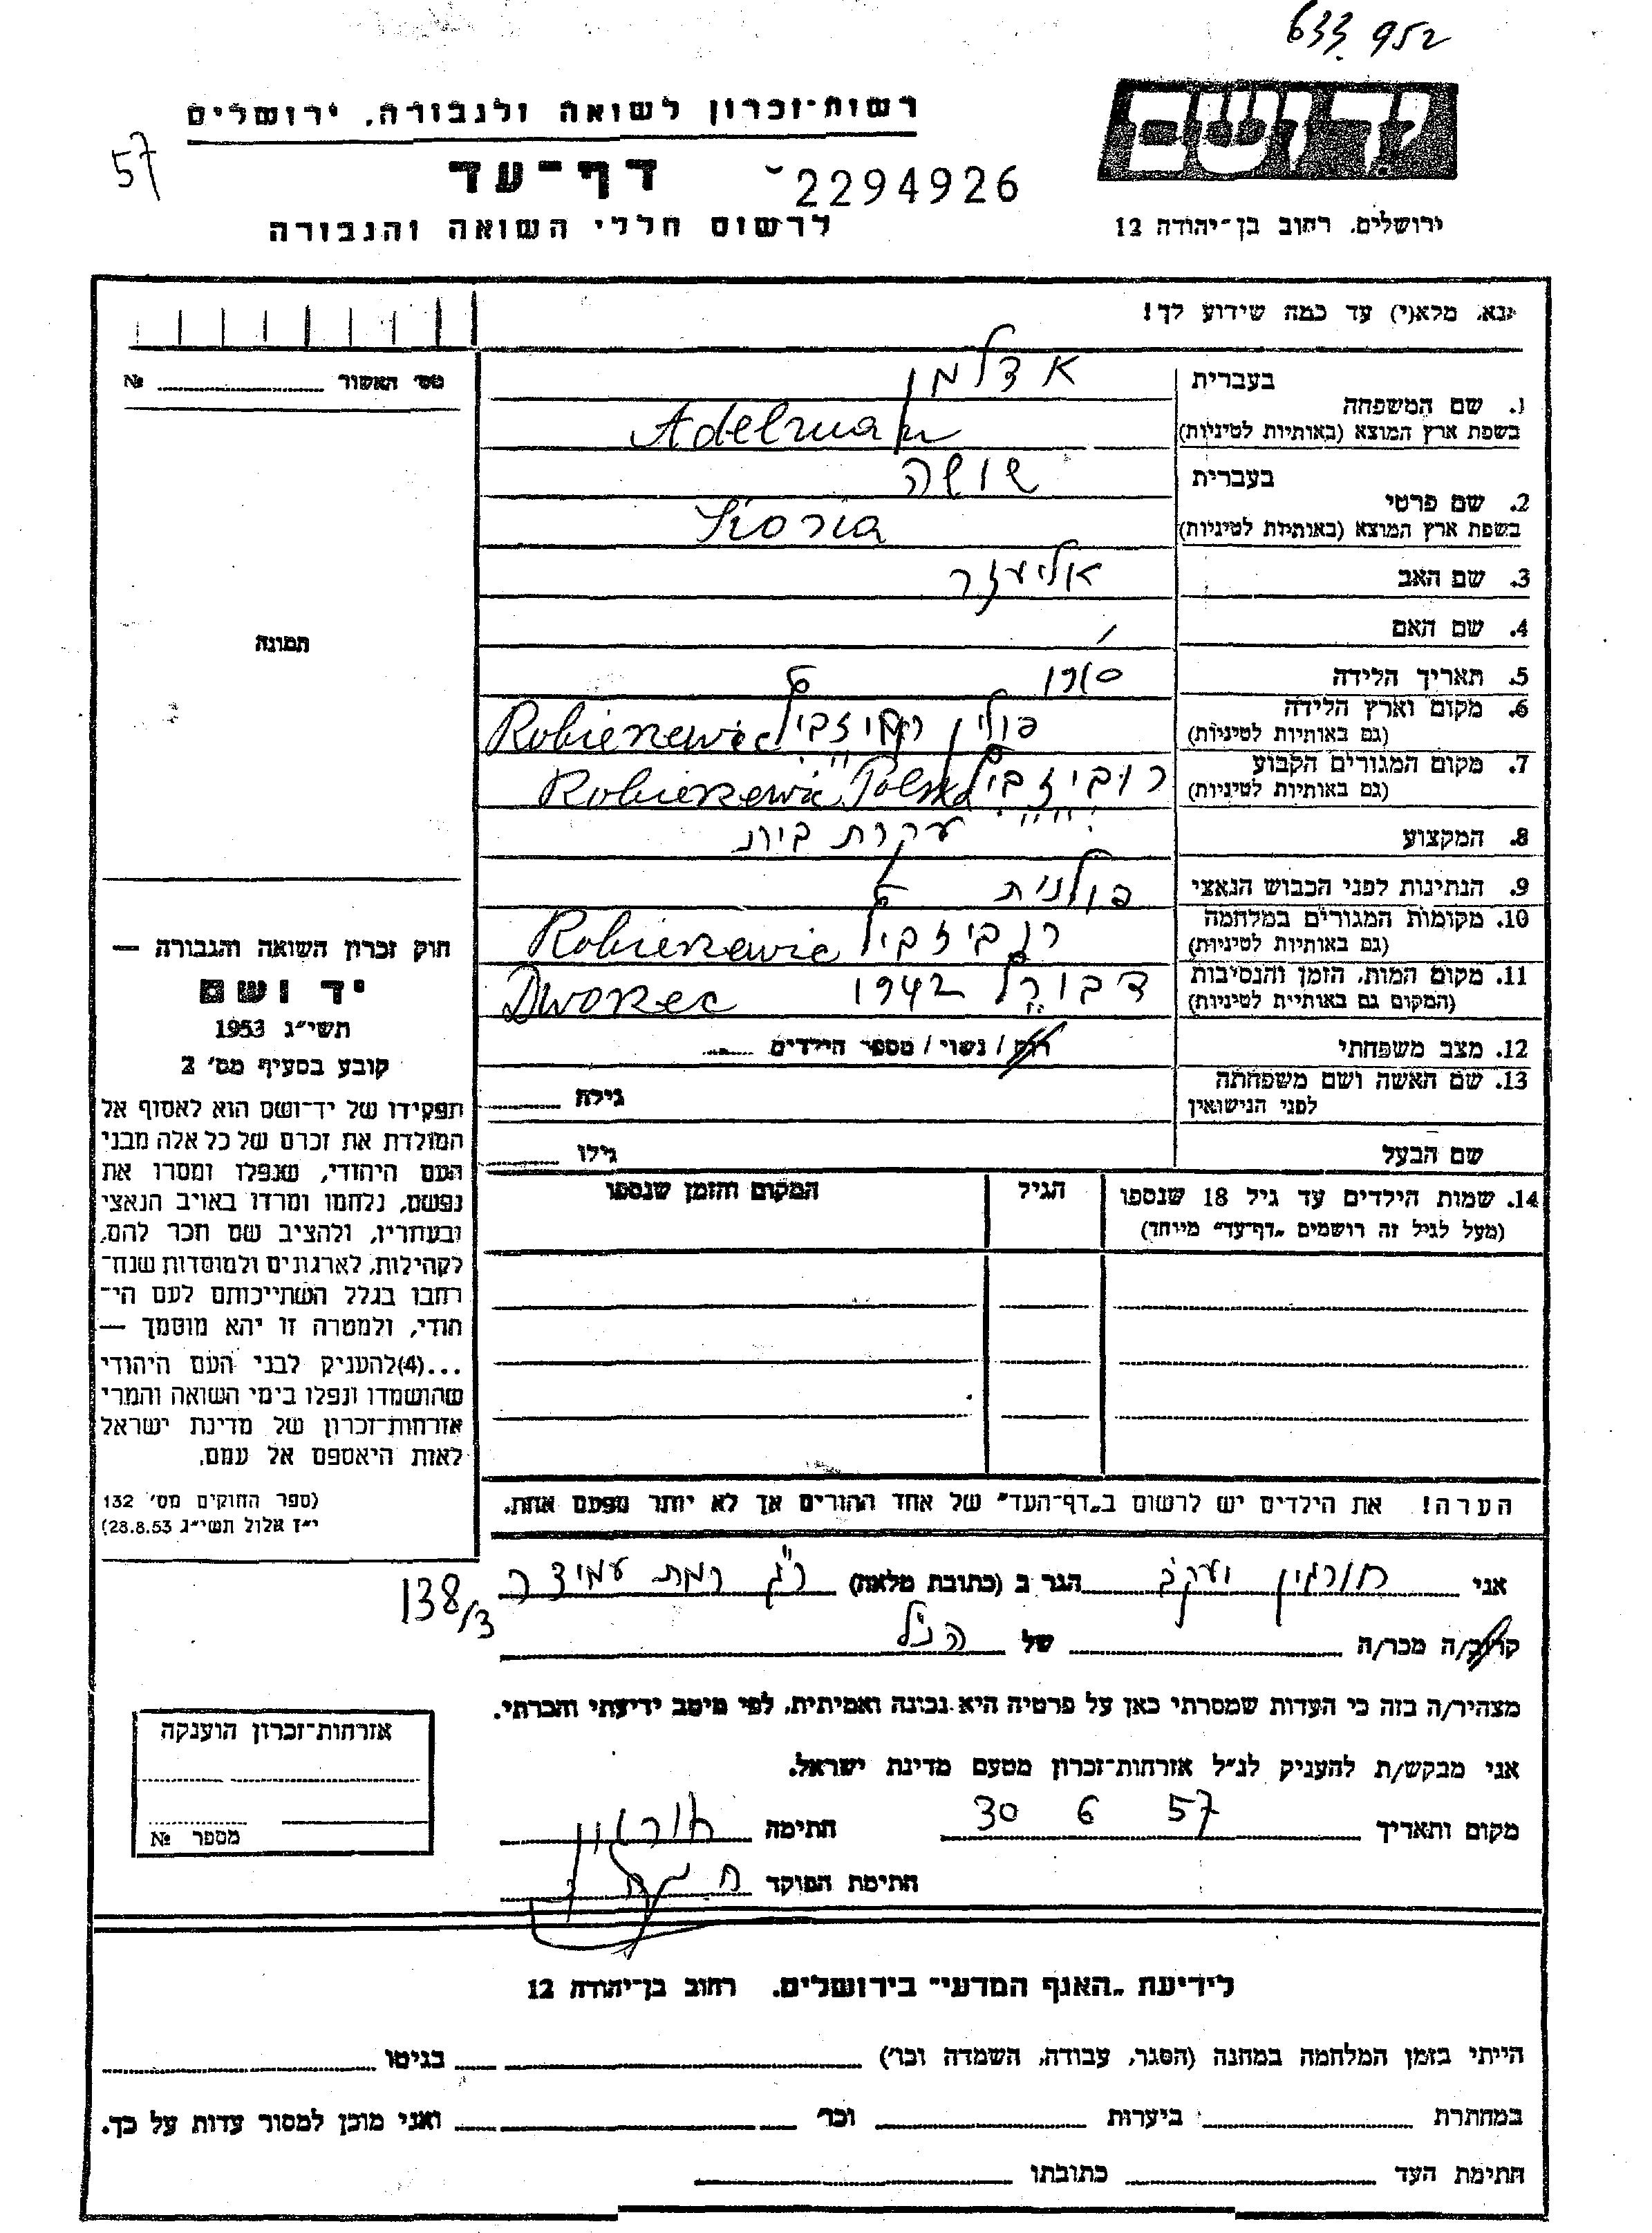 633.952
ידושם
רשות-זכרון לשואה ולגבורה. ירושלים
57
דף-עד
2294926
לרשום חללי השואה והגבורה
ירושלים. רחוב בן-יהודה 12
נא. מלא(י) עד כמה שידוע לך!
מס׳ האשור № ........
1. שם המשפחה
בעברית אדלמן
בשפת ארץ המוצא (באותיות לטיניות) Adelman
2. שם פרטי
בעברית שושה
בשפת ארץ המוצא (באותיות לטיניות)
3. שם האב אליעזר
4. שם האם /
5. תאריך הלידה 1910
6. מקום וארץ הלידה
(גם באותיות לטיניות) פולין Robierewic
7. מקום המגורים הקבוע
(גם באותיות לטיניות) רוביזביץ Robierewic Polska
8. המקצוע עקרת בית
9. הנתינות לפני הכבוש הנאצי פולנית
10. מקומות המגורים במלחמה
(גם באותיות לטיניות) רוביזביץ Robierewic
11. מקום המות, הזמן והנסיבות
(המקום גם באותיות לטיניות) דבורץ 1942 Dworec
12. מצב משפחתי רוק / נשוי / מספר הילדים ......
13. שם האשה ושם משפחתה
לפני הנישואין גילה ........
שם הבעל גילו ........
14. שמות הילדים עד גיל 18 שנספו
(מעל לגיל זה רושמים „דף-עד״ מיוחד)
הגיל
המקום והזמן שנספו
הערה! את הילדים יש לרשום ב„דף-העד״ של אחד ההורים אך לא יותר מפעם אחת.
תמונה
חוק זכרון השואה והגבורה —
יד ושם
תשי״ג 1953
קובע בסעיף מס׳ 2
תפקידו של יד-ושם הוא לאסוף אל
המולדת את זכרם של כל אלה מבני
העם היהודי, שנפלו ומסרו את
נפשם, נלחמו ומרדו באויב הנאצי
ובעוזריו, ולהציב שם וזכר להם,
לקהילות, לארגונים ולמוסדות שנח־
רבו בגלל השתייכותם לעם הי־
הודי, ולמטרה זו יהא מוסמך —
...(4) להעניק לבני העם היהודי
שהושמדו ונפלו בימי השואה והמרי
אזרחות-זכרון של מדינת ישראל
לאות היאספם אל עמם.
(ספר החוקים מס׳ 132
י״ז אלול תשי״ג 28.8.53)
אני חורגין יעקב הגר ב (כתובת מלאה) ר״ג רמת עמידר 138/3
קרוב/ה מכר/ה ........ של הנ״ל
מצהיר/ה בזה כי העדות שמסרתי כאן על פרטיה היא נכונה ואמיתית, לפי מיטב ידיעתי והכרתי.
אני מבקש/ת להעניק לנ״ל אזרחות-זכרון מטעם מדינת ישראל.
מקום ותאריך 30 6 57 חתימה חורגין
חתימת הפוקד
אזרחות-זכרון הוענקה
מספר №
לידיעת „האגף המדעי״ בירושלים. רחוב בן-יהודה 12
הייתי בזמן המלחמה במחנה (הסגר, עבודה, השמדה וכו׳) ........ בגיטו ........
במחתרת ........ ביערות ........ וכו׳ ........ ואני מוכן למסור עדות על כך.
חתימת העד ........ כתובתו ........